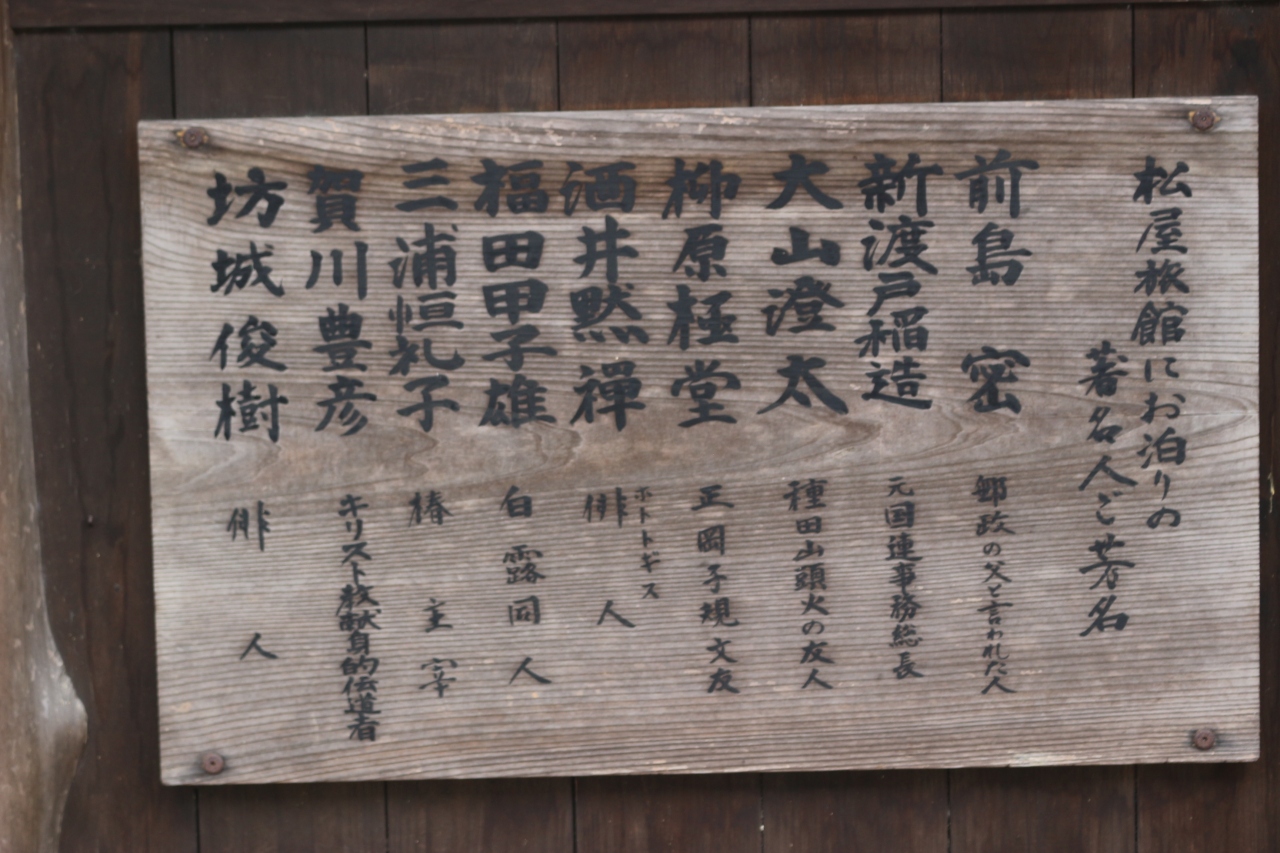 松屋旅館にお泊りの
著名人ご芳名
前島 密 郵政の父と言われた人
新渡戸稲造 元国連事務総長
大山澄太 種田山頭火の友人
柳原極堂 正岡子規文友
酒井黙禅 ホトトギス 俳人
福田甲子雄 白露同人
三浦恒礼子 椿主宰
賀川豊彦 キリスト教献身的伝道者
坊城俊樹 俳人